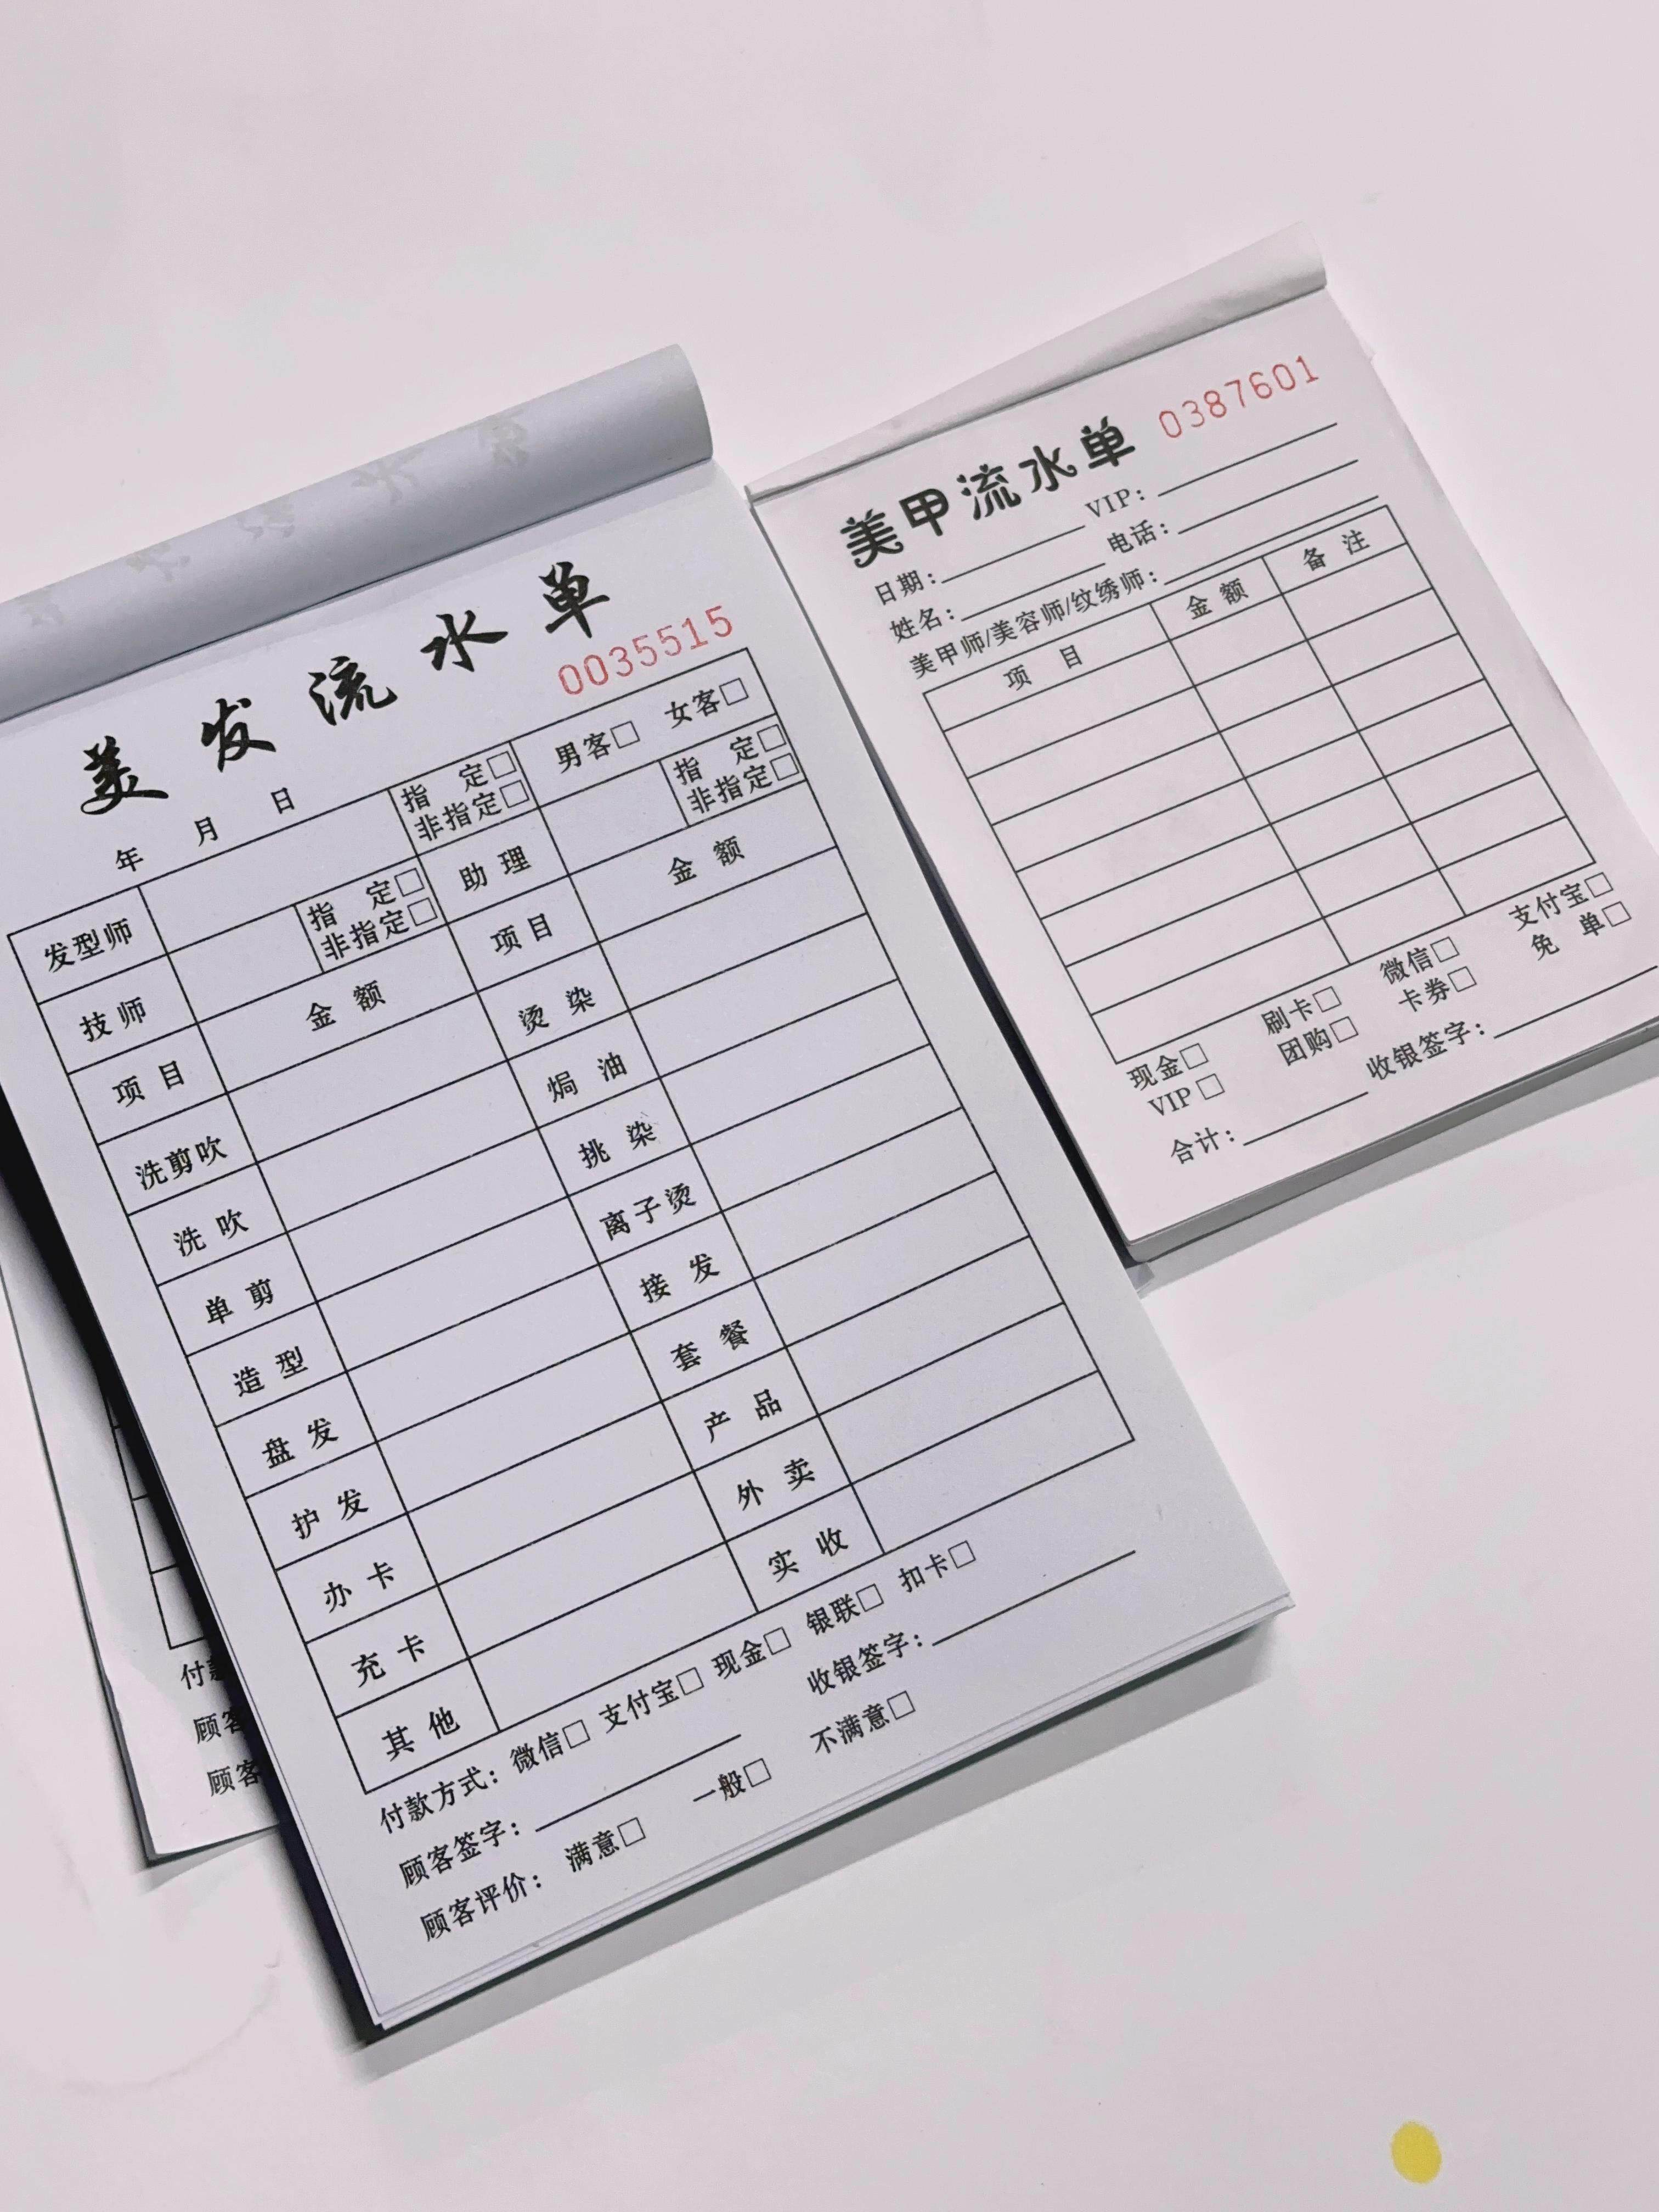 美发流水单
0035515
年 月 日
男客□ 女客□
发型师 指定□ 非指定□ 助理 指定□ 非指定□
技师 指定□ 非指定□ 项目 金额
项目 金额 烫染
洗剪吹 焗油
洗吹 挑染
单剪 离子烫
造型 接发
盘发 套餐
护发 产品
办卡 外卖
充卡 实收
其他
付款方式：微信□ 支付宝□ 现金□ 银联□ 扣卡□
顾客签字： 收银签字：
顾客评价： 满意□ 一般□ 不满意□
美甲流水单 0387601
日期： VIP：
姓名： 电话：
美甲师/美容师/纹绣师：
项目 金额 备注
现金□ 刷卡□ 微信□ 支付宝□
VIP□ 团购□ 卡券□ 免单□
合计： 收银签字：
付
顾客
顾客